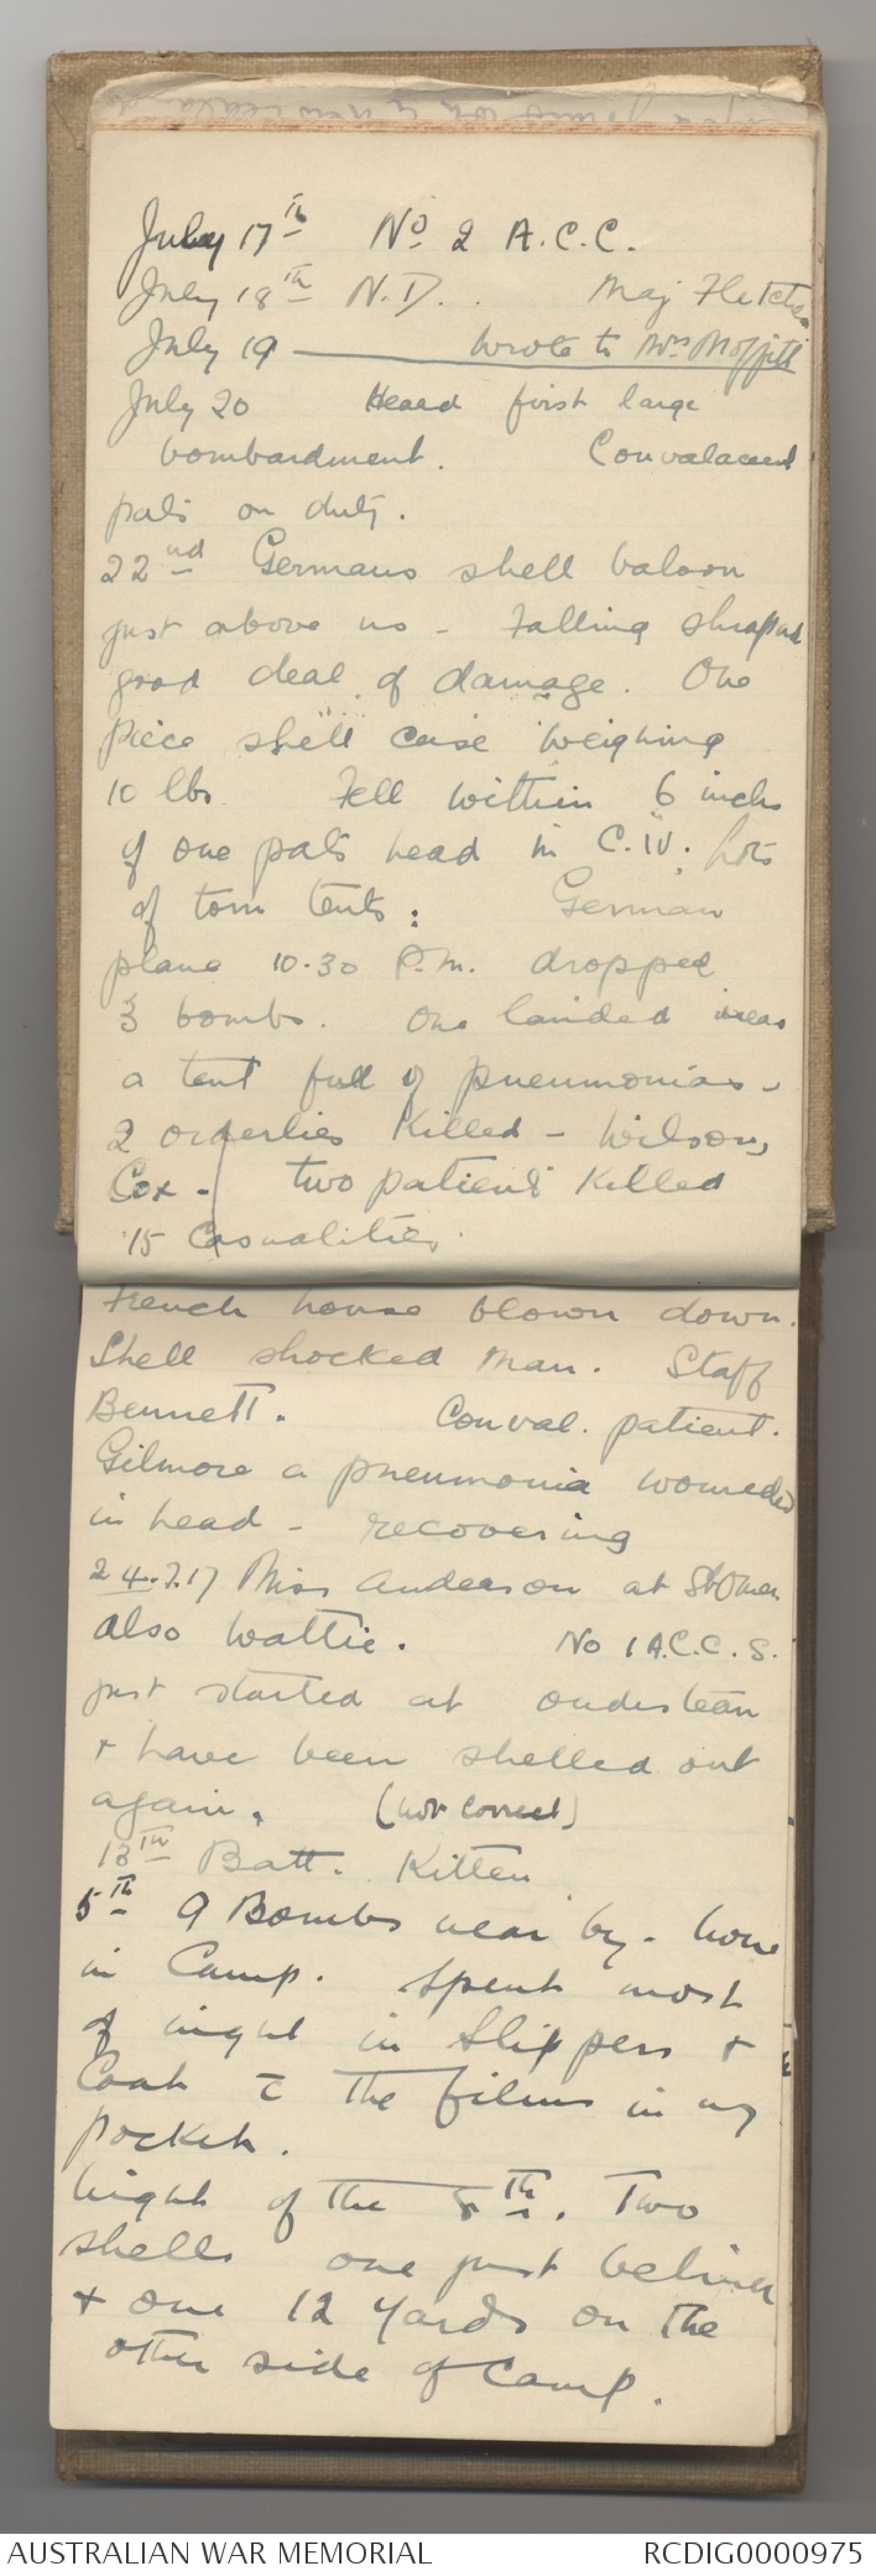 July 17th No 2 A.C.C.
July 18th N.D. . Maj Fletcher
July 19 — Wrote to Mrs Moffitt
July 20 Heard first large
bombardment. Convalacent
pats on duty.
22nd Germans shell baloon
just above us - Falling shrapnel
good deal of damage. One
piece shell case weighing
10 lbs. Fell within 6 inches
of one pats head in C.IV. Lots
of torn tents: German
plane 10.30 P.m. dropped
3 bombs. One landed near
a tent full of pneumonias -
2 orderlies Killed - Wilson,
Cox - two patients Killed
15 Casualities.
French house blown down.
Shell shocked man. Staff
Bennett. Conval. patient.
Gilmore a pneumonia wounded
in head - recovering
24.7.17 Miss Anderson at St Omer
also Wattie. No 1 A.C.C.S.
just started at
+ have been shelled out
again. (not correct)
13th Batt. Kitten
5th 9 Bombs near by - none
in Camp. Spent most
of night in Slippers +
Coat c̄ the films in my
pocket.
Night of the 8th. Two
shells one just behind
+ one 12 yards on the
other side of Camp.
AUSTRALIAN WAR MEMORIAL RCDIG0000975